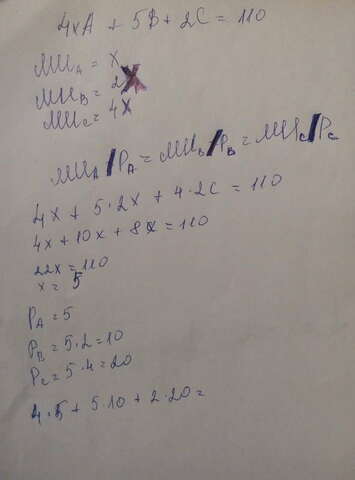 4xA + 5B + 2C = 110
MUA = X
MUB = 2X
MUC = 4X
MUA/PA = MUB/PB = MUC/PC
4X + 5·2X + 4·2C = 110
4X + 10X + 8X = 110
22X = 110
X = 5
PA = 5
PB = 5·2 = 10
PC = 5·4 = 20
4·5 + 5·10 + 2·20 =